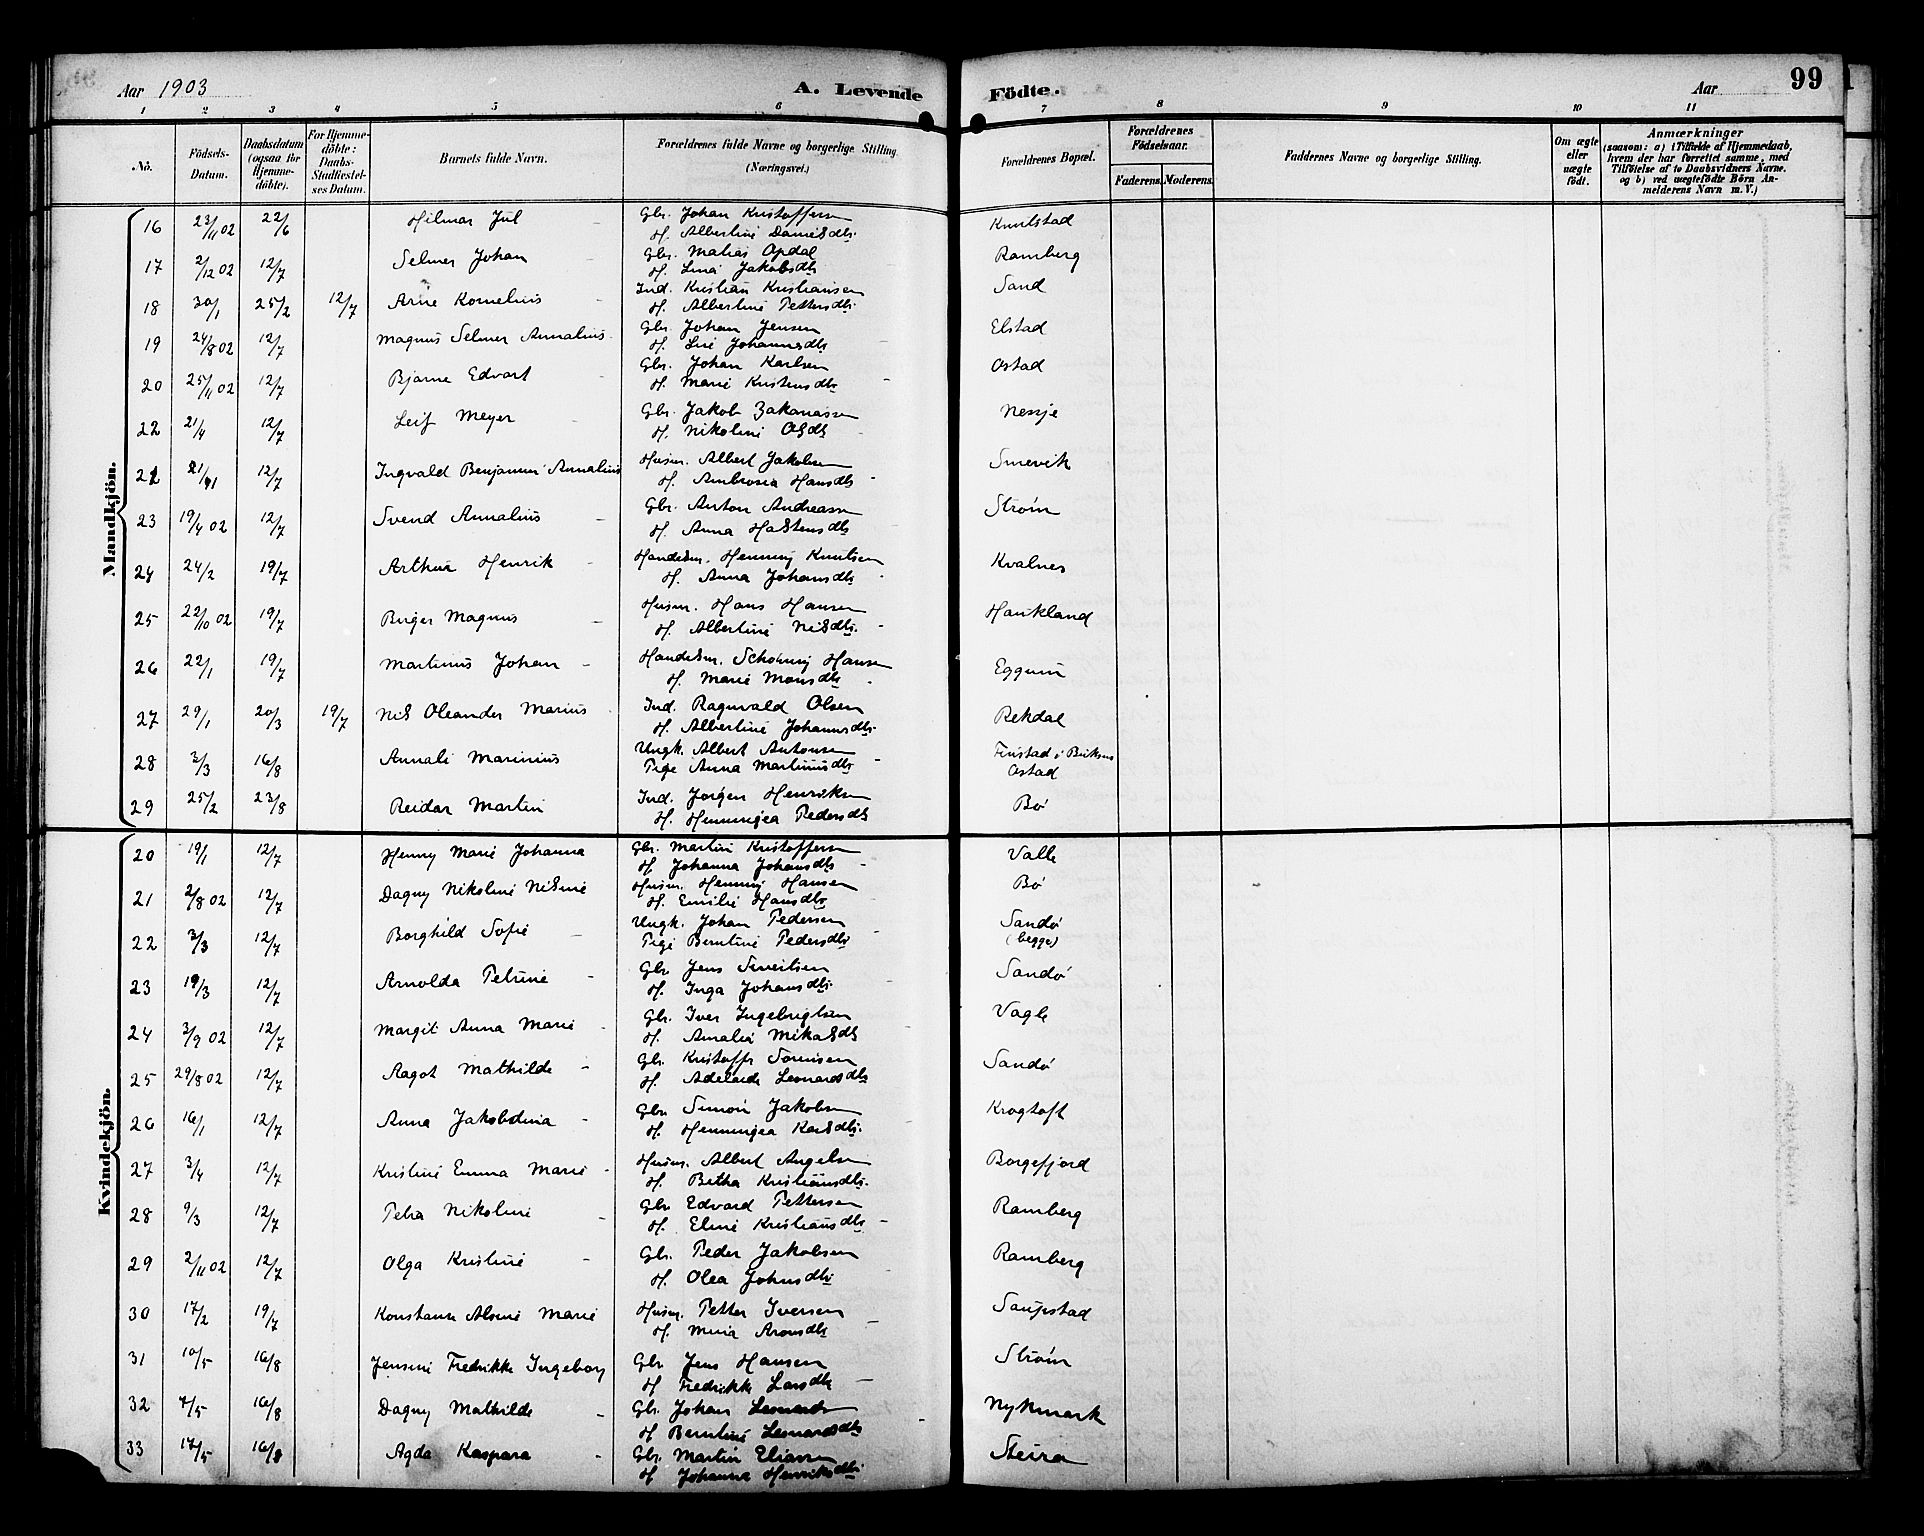 Aar 1903
A. Levende
Födte.
Aar
99
1 2 3 4 5 6 7 8 9 10 11
Nö.
Födsels-Datum.
Daabsdatum (ogsaa for Hjemme-döbte).
For Hjemme-döbte: Daabs-Stadfæstel-ses Datum.
Barnets fulde Navn.
Forældrenes fulde Navne og borgerlige Stilling. (Næringsvei.)
Forældrenes Bopæl.
Forældrenes Födselsaar.
Faderens. Moderens.
Faddernes Navne og borgerlige Stilling.
Om ægte eller uægte födt.
Anmærkninger
(saasom: a) i Tilfælde af Hjemmedaab, hvem der har forrettet samme, med Tilföielse af to Daabsvidners Navne, og b) ved uægtefödte Börn An-melderens Navn m. V.)
Mandkjön.
16 23/11 02 22/6 Hilmar Jul Gbr. Johan Kristoffersen Knutstad
H. Albertine Danielsdtr.
17 2/12 02 12/7 Selmer Johan Gbr. Matias Opdal Ramberg
H. Lina Jakobsdtr
18 30/1 25/2 12/7 Arne Kornelius Ind. Kristian Kristiansen Sand
H. Albertine Pettersdtr.
19 24/8 02 12/7 Magnus Selmer Annalius Gbr. Johan Jensen Elstad
H. Line Johannesdtr
20 25/11 02 12/7 Bjarne Edvart Gbr. Johan Karlsen Ostad
H. Marie Kristensdtr
22 21/4 12/7 Leif Meyer Gbr. Jakob Zakariassen Nessje
H. Nikoline Olsdtr
21 12/7 Ingvald Benjamin Annalius Husm. Albert Jakobsen Smevik
H. Ambrosia Hansdtr
23 19/4 02 12/7 Svend Annalius Gbr. Anton Andreassen Strøm
H. Anna Halstensdtr
24 24/2 19/7 Arthur Henrik Handelsm. Henning Knutsen Kvalnes
H. Anna Johansdtr
25 22/10 02 19/7 Birger Magnus Husm. Hans Hansen Haukland
H. Albertine Nilsdtr.
26 22/1 19/7 Martinus Johan Handelsm. Schøning Hansen Eggum
H. Marie Monsdtr
27 29/1 20/3 19/7 Nils Oleander Marius Ind. Ragnvald Olsen Rekdal
H. Albertine Johannesdtr.
28 3/3 16/8 Annali Marinius Ungk. Albert Antonsen Finstad i Buksnes
Pige Anna Martinusdtr Ostad
29 25/2 23/8 Reidar Martin Ind. Jørgen Henriksen Bø
H. Henningea Pedersdtr
Kvindekjön.
20 19/1 12/7 Henny Marie Johanna Gbr. Martin Kristoffersen Valle
H. Johanna Johansdtr
21 2/8 02 12/7 Dagny Nikoline Nilsine Husm. Henning Hansen Bø
H. Emilie Hansdtr
22 3/3 12/7 Borghild Sofie Ungk. Johan Pedersen Sandø
Pige Berntine Pedersdtr (begge)
23 19/3 12/7 Arnolda Petrine Gbr Jens Sivertsen Sandø
H. Inga Johansdtr.
24 3/9 02 12/7 Margit Anna Marie Gbr. Iver Ingebrigtsen Vagle
H. Amalia Mikalsdtr
25 29/8 02 12/7 Aagot Mathilde Gbr. Kristoffer Tønnisen Sandø
H. Adelaide Leonardsdtr
26 16/1 12/7 Anna Jakobdina Gbr Simon Jakobsen Krogtoft
H. Henningea Karlsdtr.
27 3/4 12/7 Kristine Emma Marie Husm. Albert Angelsen Borgefjord
H. Betha Kristiansdtr.
28 9/3 12/7 Petra Nikoline Gbr Edvard Pettersen Ramberg
H. Eline Kristiansdtr
29 2/11 02 12/7 Olga Kristine Gbr. Peder Jakobsen Ramberg
H. Olea Johnsdtr
30 17/2 19/7 Konstanse Alvine Marie Husm. Petter Iversen Saupstad
H. Mina Aronsdtr
31 10/5 16/8 Jensine Fredrikke Ingeborg Gbr Jens Hansen Strøm
H Fredrikke Larsdtr
32 4/5 16/8 Dagny Mathilde Gbr. Johan Leonardsen Nykmark
H Berntine Leonardsdtr
33 17/5 16/8 Agda Kaspara Gbr. Martin Eliassen Steira
H Johanna Henriksdtr.